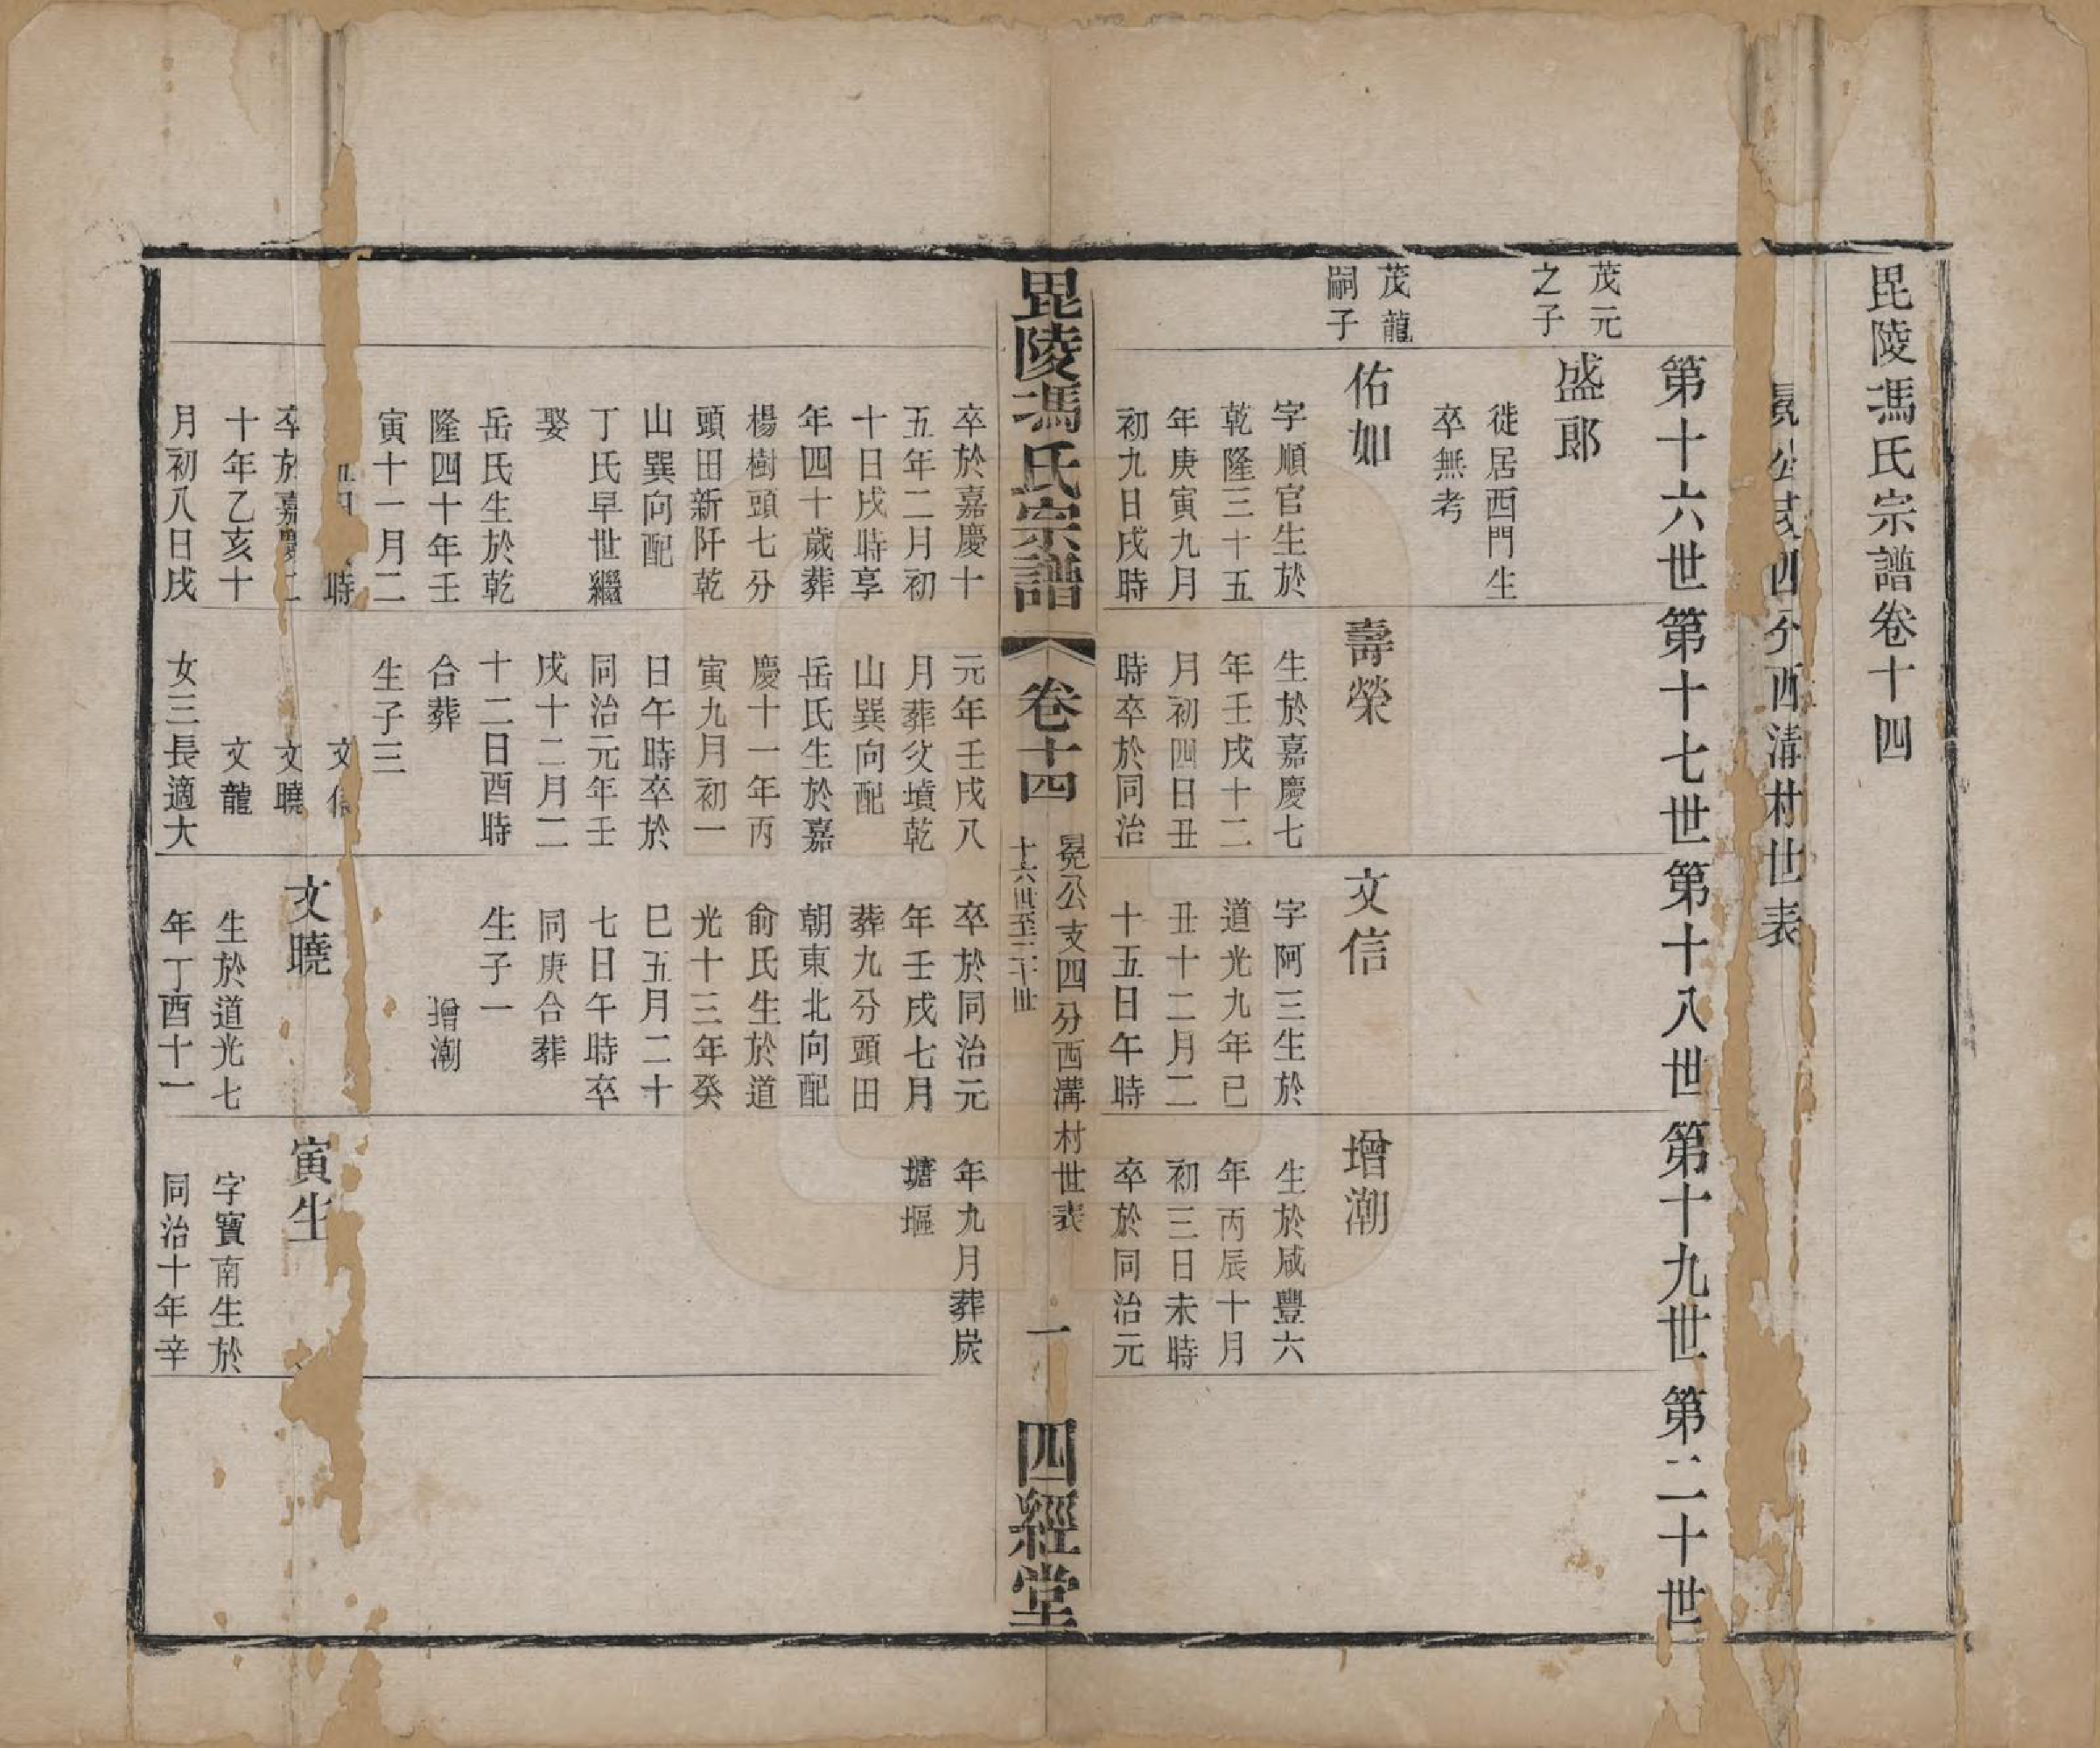 毘陵馮氏宗譜卷十四
冕公支四分西溝村世表
第十六世
第十七世
第十八世
第十九世
第二十世
茂元
之子
盛郎
徙居西門生
卒無考
茂龍
嗣子
佑如
字順官生於
乾隆三十五
年庚寅九月
初九日戌時
壽榮
生於嘉慶七
年壬戌十二
月初四日丑
時卒於同治
文信
字阿三生於
道光九年已
丑十二月二
十五日午時
增潮
生於咸豐六
年丙辰十月
初三日未時
卒於同治元
毘陵馮氏宗譜
卷十四
冕公支四分西溝村世表
十六世至二十世
一
四經堂
卒於嘉慶十
五年二月初
十日戌時享
年四十歲葬
楊樹頭七分
頭田新阡乾
山巽向配
丁氏早世繼
娶
岳氏生於乾
隆四十年壬
寅十一月二
時
卒於嘉慶二
十年乙亥十
月初八日戌
元年壬戌八
月葬父墳乾
山巽向配
岳氏生於嘉
慶十一年丙
寅九月初一
日午時卒於
同治元年壬
戌十二月二
十二日酉時
合葬
生子三
文信
文曉
文龍
女三長適大
卒於同治元
年壬戌七月
葬九分頭田
朝東北向配
俞氏生於道
光十三年癸
巳五月二十
七日午時卒
同庚合葬
生子一
增潮
文曉
生於道光七
年丁酉十一
年九月葬炭
塘塸
寅生
字寶南生於
同治十年辛